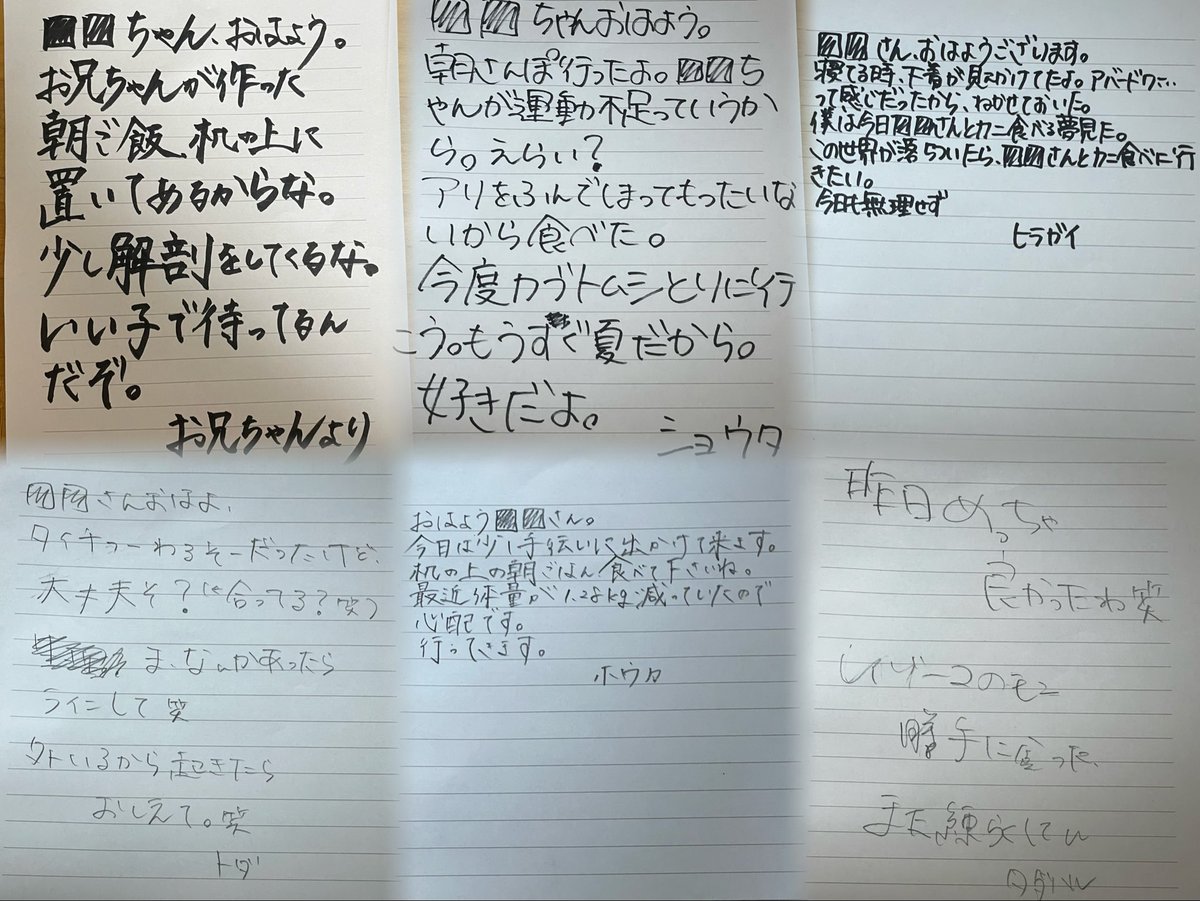 ちゃん、おはよう。
お兄ちゃんが作った
朝ご飯、机の上に
置いてあるからな。
少し解剖をしてくるな。
いい子で待ってるん
だぞ。
お兄ちゃんより
ちゃんおはよう。
朝さんぽ行ったよ。ち
ゃんが運動不足っていうか
ら。えらい?
アリをふんでしまってもったいな
いから食べた。
今度カブトムシとりに行
こう。もうすぐ夏だから。
好きだよ。
ショウタ
さん、おはようございます。
寝てる時、下着が見えかけてたよ。アバードワ…
って感じだったから、ねかせておいた。
僕は今日さんとカニ食べる夢見た。
この世界が落ちついたら、さんとカニ食べに行
きたい。
今日も無理せず
ヒラガイ
さんおはよ、
タイチョーわるそーだったけど、
大丈夫そ?(←合ってる?笑)
ま、なんかあったら
ラインして笑
外いるから起きたら
おしえて。笑
トダ
おはようさん。
今日は少し手伝いに出かけて来ます。
机の上の朝ごはん食べて下さいね。
最近体重が1.28kg減っていたので
心配です。
行ってきます。
ホウカ
昨日めっちゃ
良かったわ笑
レイゾーコのモン
勝手に食った、
また練らくして